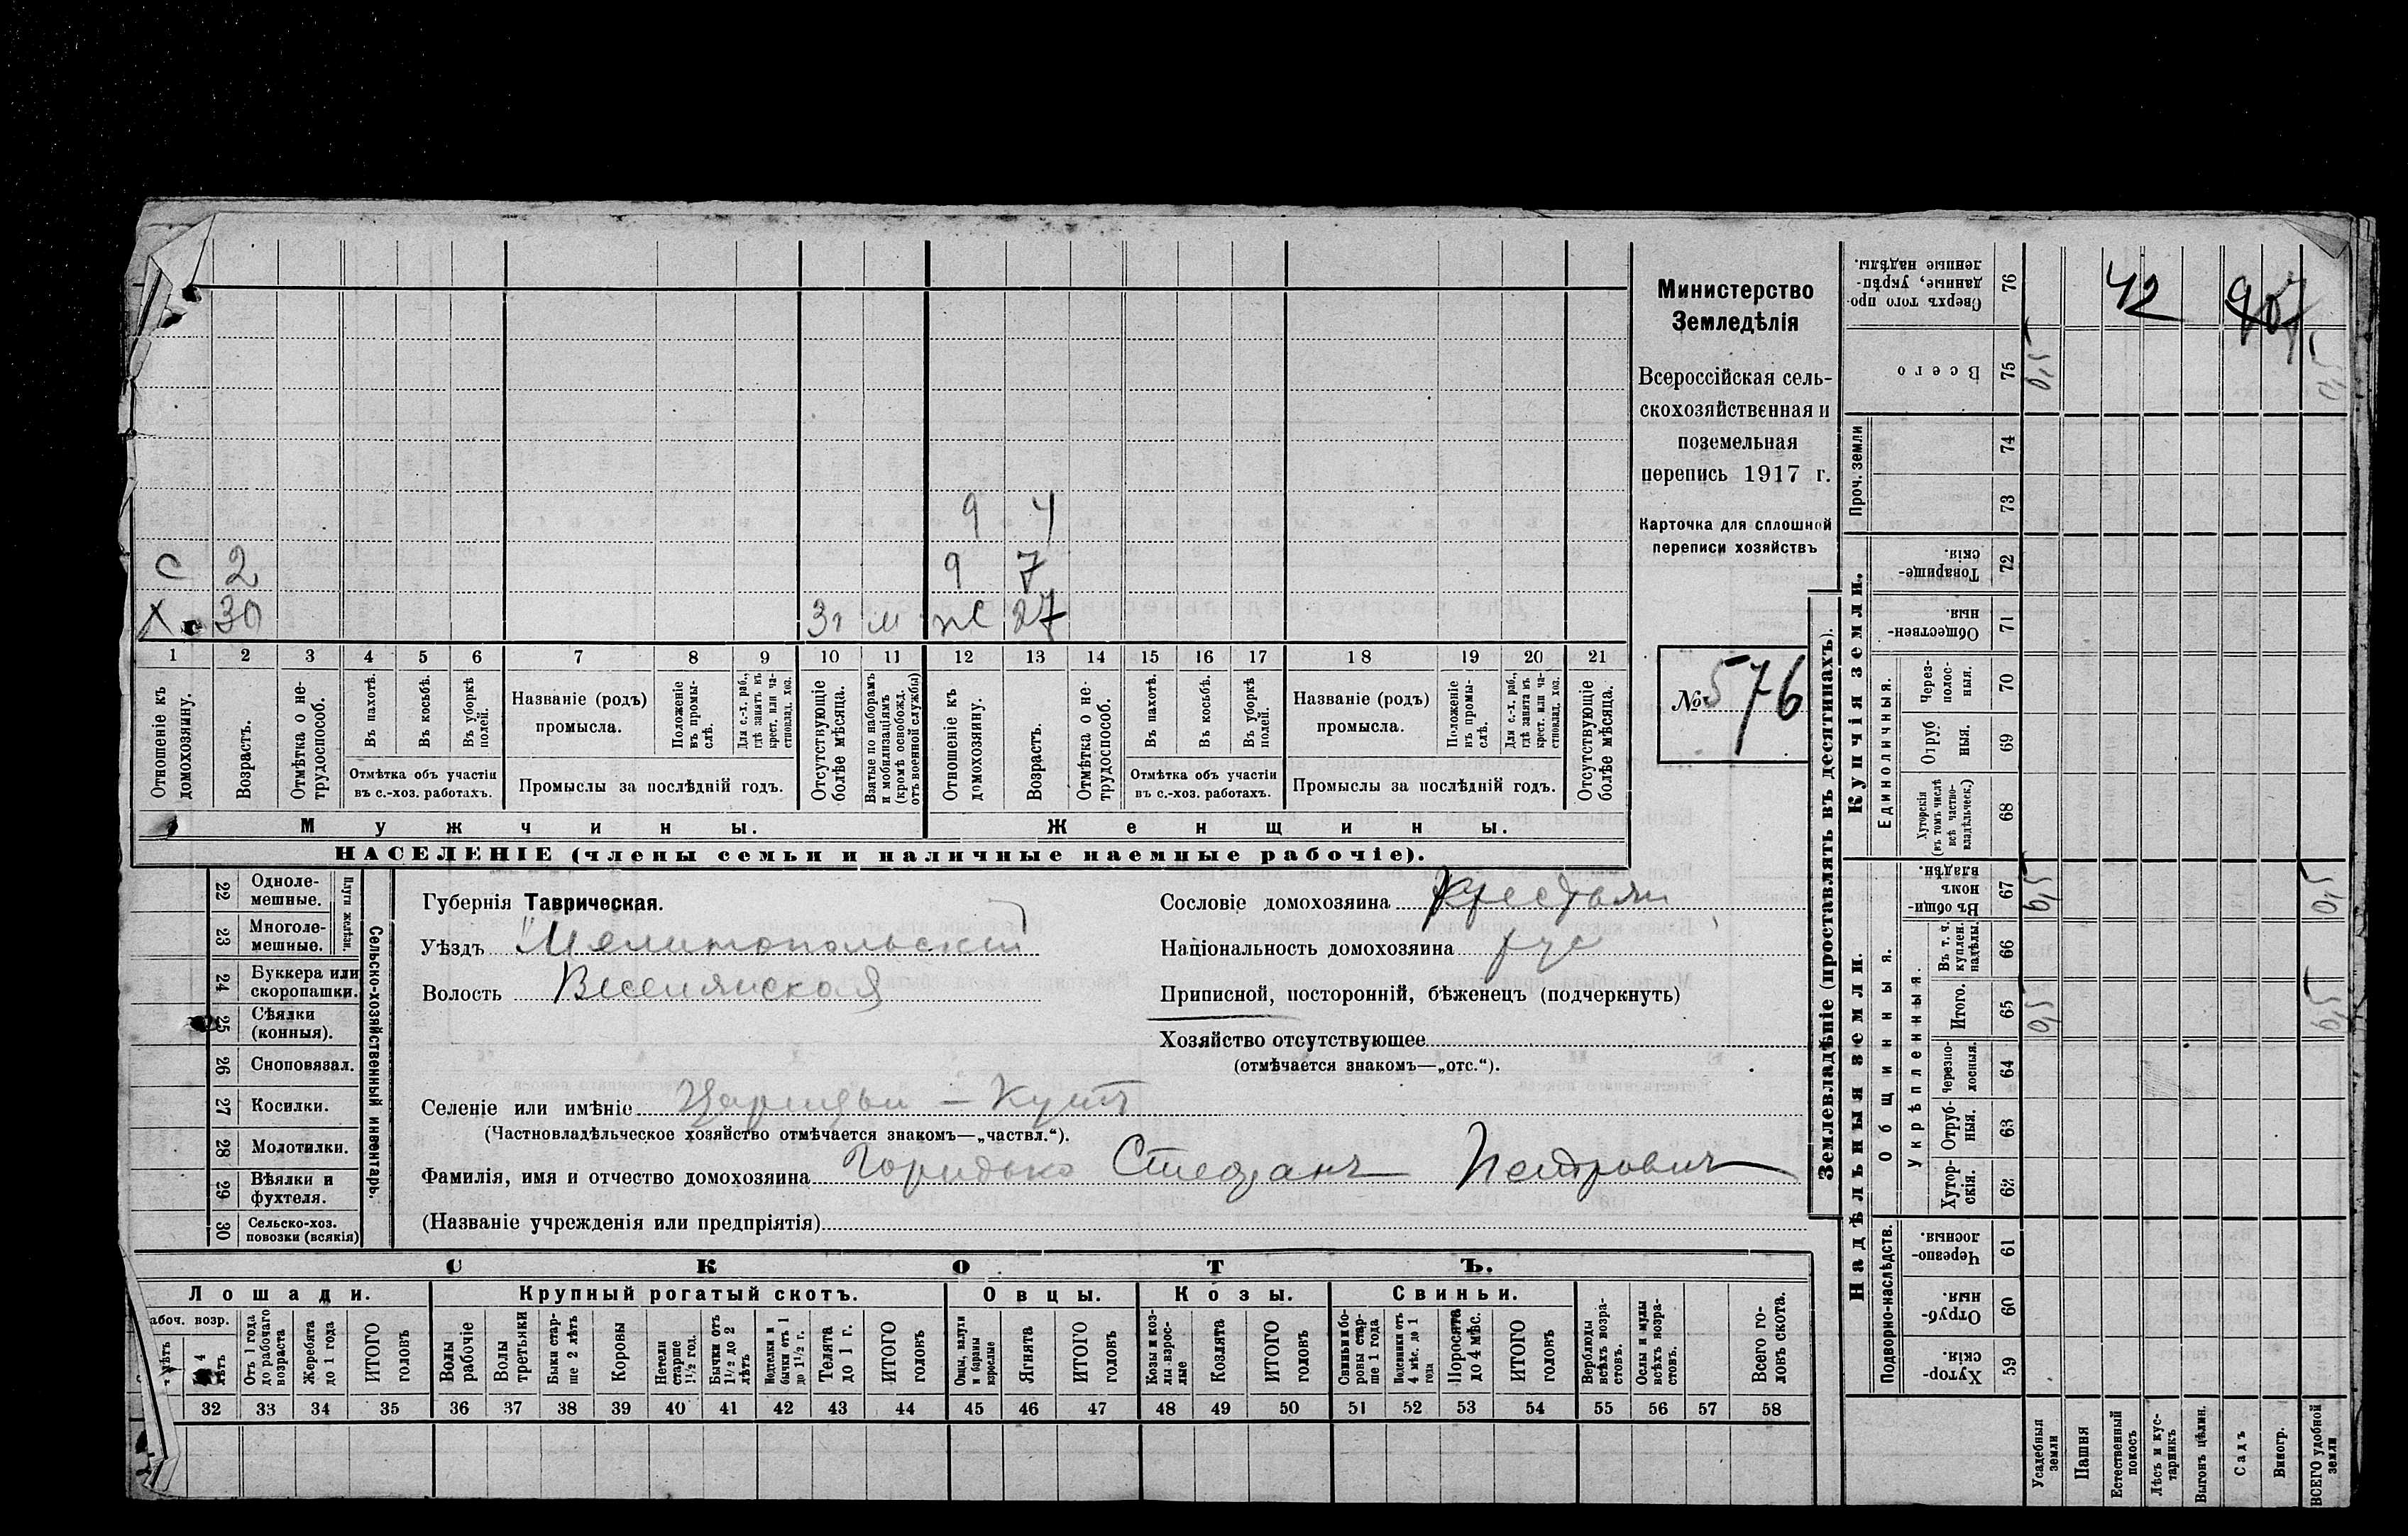 Министерство
Земледѣлія
Всероссійская сель-
скохозяйственная и
поземельная
перепись 1917 г.
Карточка для сплошной
переписи хозяйствъ
№ 576
9 4
С 2 9 7
Х. 30 3г м ж 27
1 2 3 4 5 6 7 8 9 10 11 12 13 14 15 16 17 18 19 20 21
Отношеніе къ домохозяину.
Возрастъ.
Отмѣтка о не-трудоспособ.
Въ пахотѣ.
Въ косьбѣ.
Въ уборкѣ полей.
Отмѣтка объ участіи
въ с.-хоз. работахъ.
Названіе (родъ)
промысла.
Положеніе въ промы-слѣ.
Для с.-х. раб., гдѣ занятъ въ крест. или ча-стновлад. хоз.
Промыслы за послѣдній годъ.
Отсутствующіе болѣе мѣсяца.
Взятые по наборамъ и мобилизаціямъ (кромѣ освобожд. отъ военной службы)
Отношеніе къ домохозяину.
Возрастъ.
Отмѣтка о не-трудоспособ.
Въ пахотѣ.
Въ косьбѣ.
Въ уборкѣ полей.
Отмѣтка объ участіи
въ с.-хоз. работахъ.
Названіе (родъ)
промысла.
Положеніе въ промы-слѣ.
Для с.-х. раб., гдѣ занятъ въ крест. или ча-стновлад. хоз.
Промыслы за послѣдній годъ.
Отсутствующіе болѣе мѣсяца.
Мужчины. Женщины.
НАСЕЛЕНІЕ (члены семьи и наличные наемные рабочіе).
Сельско-хозяйственный инвентарь.
Плуги желѣзн.
22 Одноле-мешные.
23 Многоле-мешные.
24 Буккера или скоропашки.
25 Сѣялки (конныя).
26 Сноповязал.
27 Косилки.
28 Молотилки.
29 Вѣялки и фухтеля.
30 Сельско-хоз. повозки (всякія)
Губернія Таврическая.
Уѣздъ Мелитопольскій
Волость Веселянская
Сословіе домохозяина Крестьян
Національность домохозяина рус
Приписной, посторонній, бѣженецъ (подчеркнуть)
Хозяйство отсутствующее
(отмѣчается знакомъ—„отс.“).
Селеніе или имѣніе – Кутъ
(Частновладѣльческое хозяйство отмѣчается знакомъ—„частвл.“).
Фамилія, имя и отчество домохозяина Степанъ Петровичъ
(Названіе учрежденія или предпріятія)
СКОТЪ.
Лошади. Крупный рогатый скотъ. Овцы. Козы. Свиньи.
абоч. возр.
4 лѣтъ
Отъ 1 года до рабочаго возраста
Жеребята до 1 года
ИТОГО головъ
Волы рабочіе
Волы третьяки
Быки стар-ше 2 лѣтъ
Коровы
Нетели старше 1½ год.
Бычки отъ 1½ до 2 лѣтъ
Нетелки и бычки отъ 1 до 1½ г.
Телята до 1 г.
ИТОГО головъ
Овцы, валухи и бараны взрослые
Ягнята
ИТОГО головъ
Козы и коз-лы взрос-лые
Козлята
ИТОГО головъ
Свиньи и бо-ровы стар-ше 1 года
Подсвинки отъ 4 мѣс. до 1 года
Поросята до 4 мѣс.
ИТОГО головъ
Верблюды всѣхъ возра-стовъ.
Ослы и мулы всѣхъ возра-стовъ.
Всего го-ловъ скота.
32 33 34 35 36 37 38 39 40 41 42 43 44 45 46 47 48 49 50 51 52 53 54 55 56 57 58
Землевладѣніе (проставлять въ десятинахъ).
Сверхъ того про-данные, укрѣп-ленные надѣлы. 76 42
Всего 75 0,5 0,5
Проч. земли
74
73
Купчія земли.
Товарище-скія. 72
Обществен-ныя. 71
Единоличныя.
Через-полос-ныя. 70
Отруб-ныя. 69
Хуторскія (въ томъ числѣ всѣ частно-владѣльческ.) 68
Надѣльныя земли.
Общинныя.
Въ общин-номъ владѣн. 67 0,5 0,5
Укрѣпленныя.
Въ т. ч. куплен. надѣлы. 66
Итого. 65 0,5 0,5
Черезпо-лосныя. 64
Отруб-ныя. 63
Хутор-скія. 62
Подворно-наслѣдств.
Черезпо-лосныя. 61
Отруб-ныя. 60
Хутор-скія. 59
Усадебныя земли
Пашня
Естественный покосъ
Лѣсъ и кус-тарникъ
Выгонъ цѣлин.
Садъ
Виногр.
ВСЕГО удобной земли